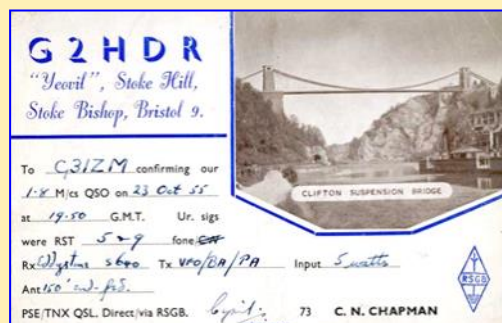 G2HDR
"Yeovil", Stoke Hill,
Stoke Bishop, Bristol 9.
CLIFTON SUSPENSION BRIDGE
To G3IZM confirming our
1·8 M/cs QSO on 23 Oct 55
at 19·50 G.M.T. Ur. sigs
were RST 5 9 fone/CW
Rx Eddystone S640 Tx VFO/BA/PA Input 5 watts
Ant 150' end-fed.
PSE/TNX QSL. Direct/via RSGB. 73 C. N. CHAPMAN
RSGB